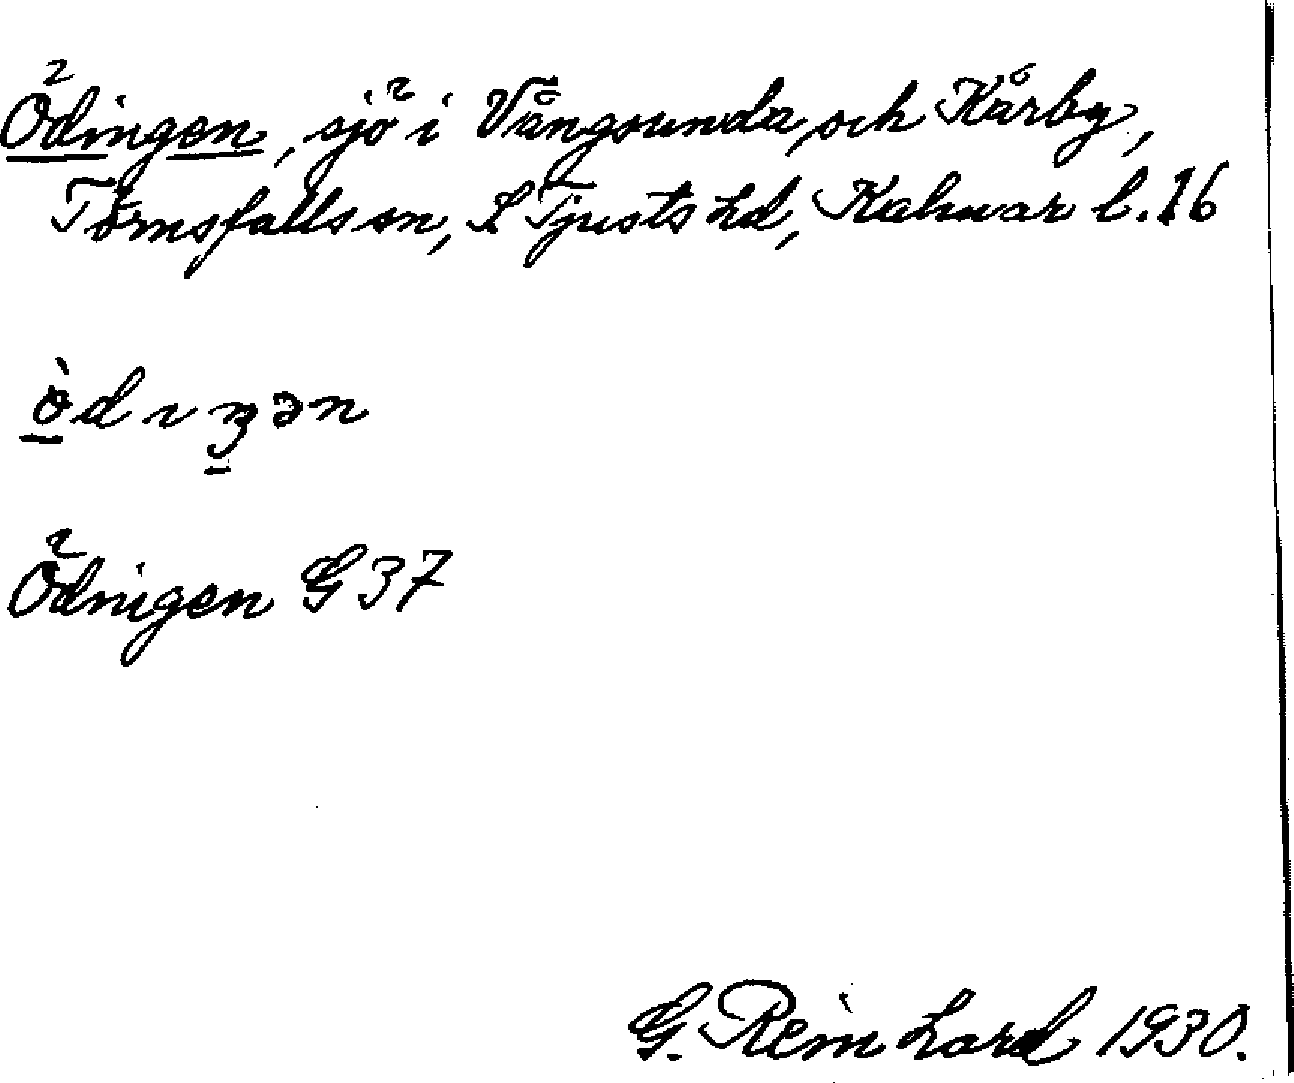 Ödingen, sjö i Vångsunda och Kårby,
Törnsfalls sn, S Tjusts hd, Kalmar l. 16
ö̀dıŋən
Ödingen G 37
G. Reinhard 1930.